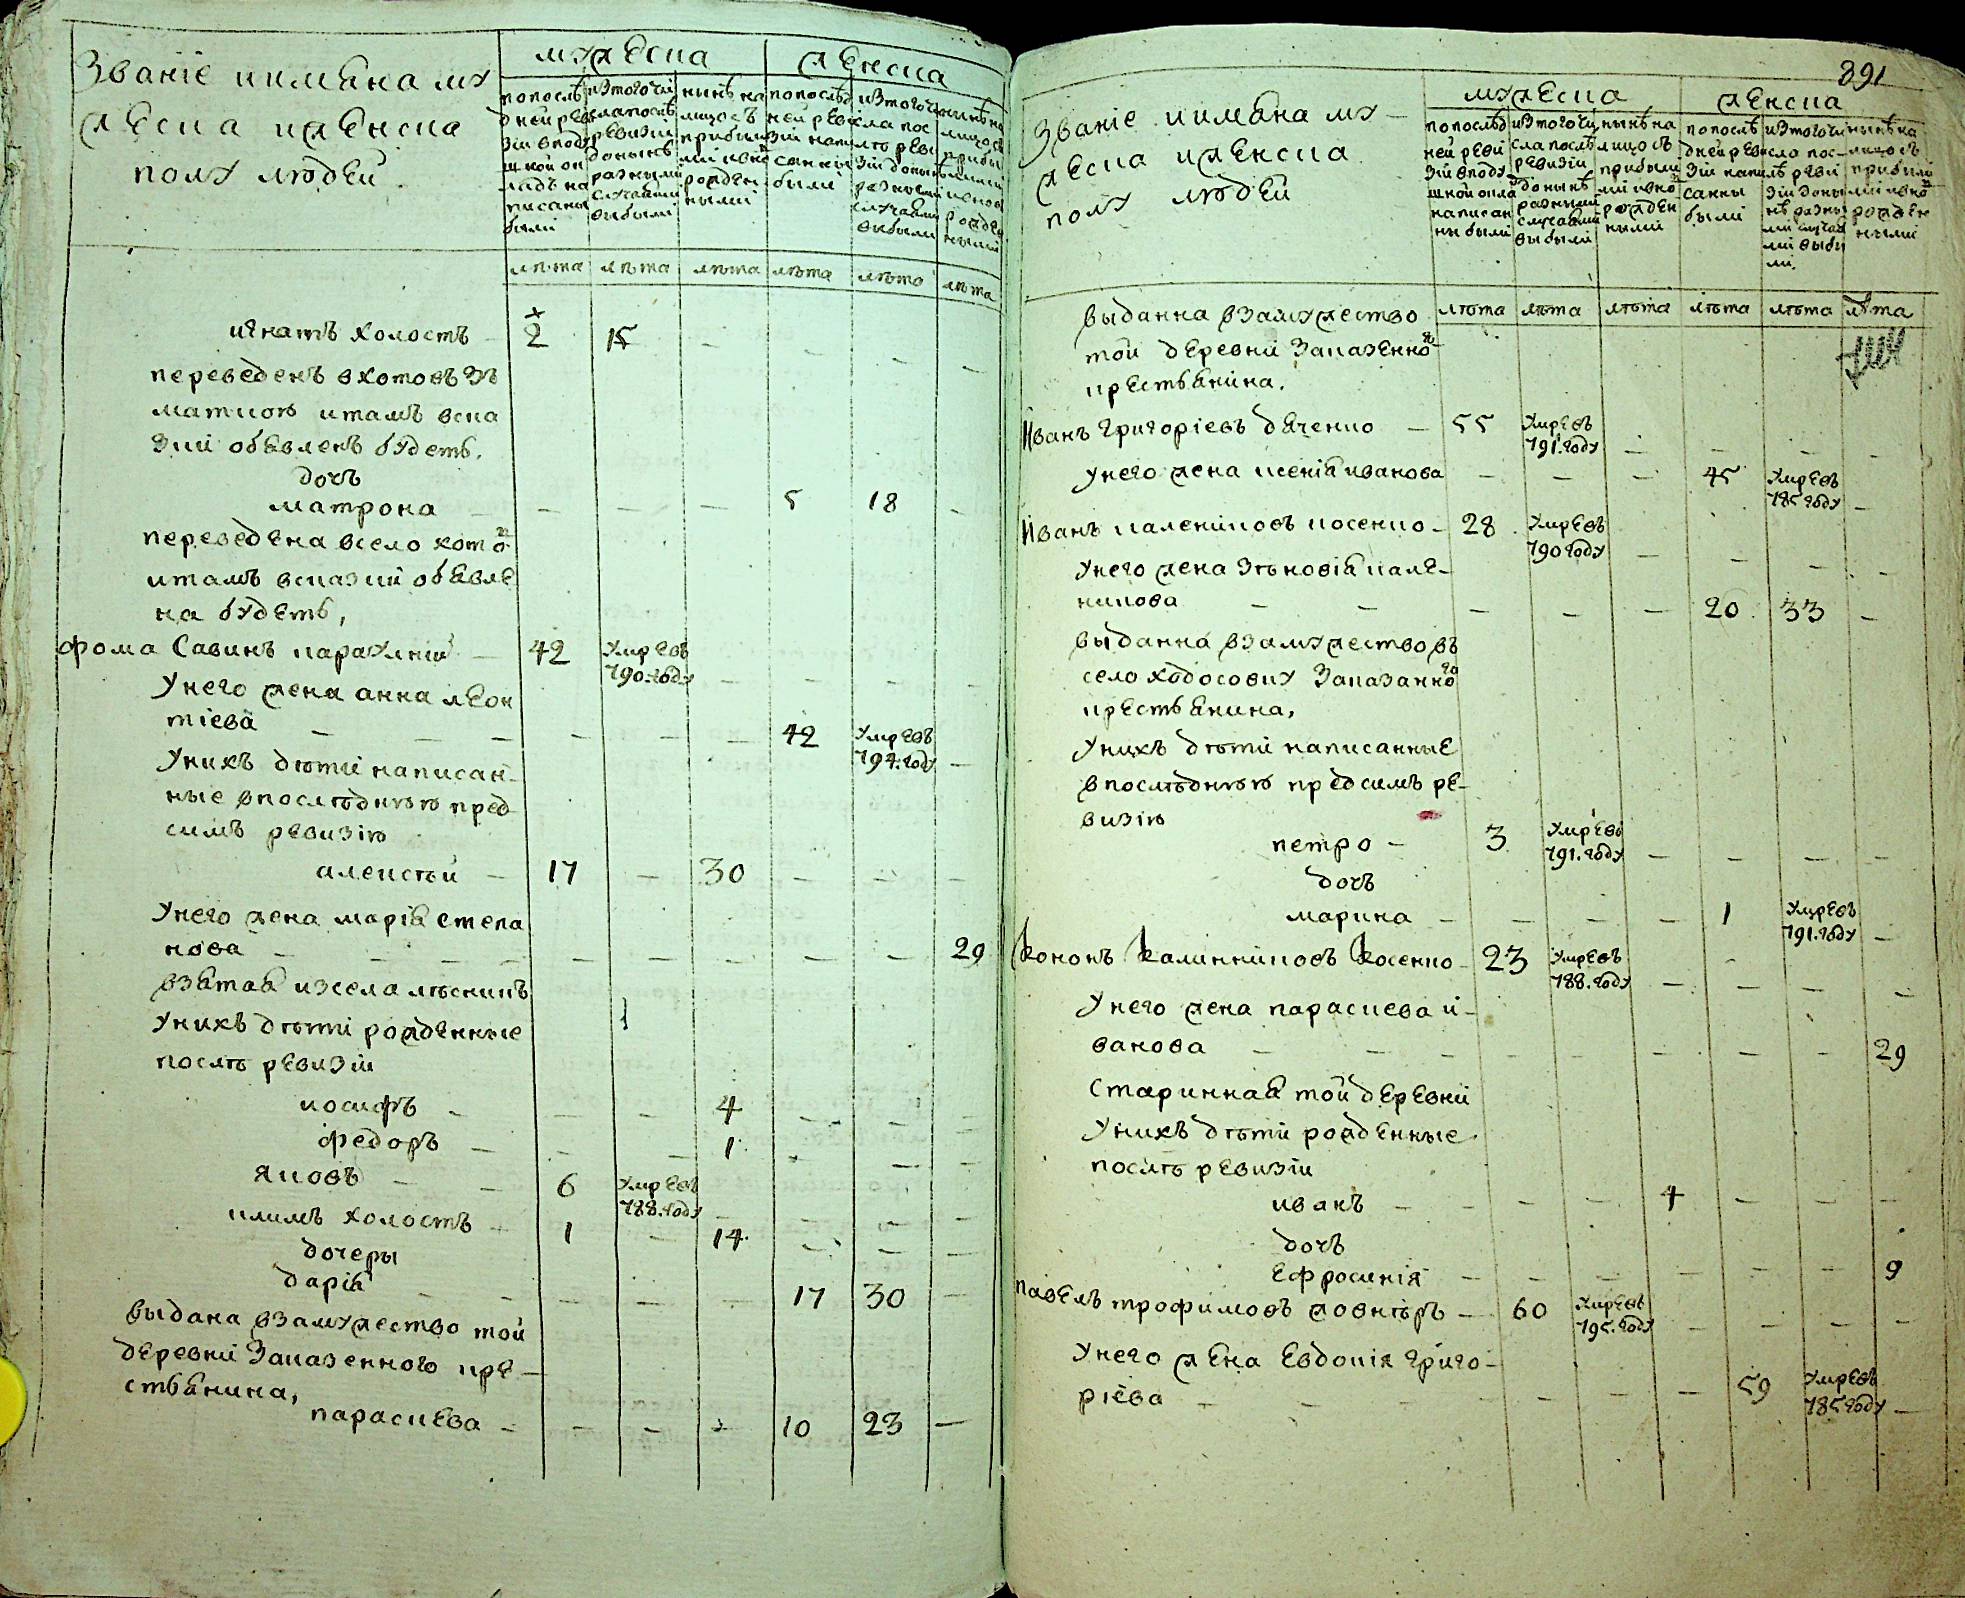 Званіе и имѣна му
жеска и женска
полу людей.
мужеска
женска
по послѣ
дней реви
зіи в поду
шной ок
ладъ на
писаны
были
изтого чи
сла послѣ
ревизіи
донынѣ
разными
случаями
выбыли
нынѣ на
лицо съ
прибыл
ми и вно
рожден
ными
по послѣд
ней реви
зіи напи
санны
были
изтого чи
сла пос
лѣ реви
зіи донынѣ
разными
случаями
выбыли
нынѣ на
лицо съ
прибы
лыми
и внов
рожден
ными
лѣта лѣта лѣта лѣта лѣта лѣта
игнатъ холостъ 2 15
переведенъ в хотовъ зъ
маткою и тамъ вска
зки обявленъ будеть.
дочъ
матрона 5 18
переведена в село хотов
и тамъ всказки обявле
на будеть,
фома Савинъ 42 умревъ
790. году
у него жена анна леон
тіева 42 умревъ
794. году
у нихъ дѣти написан-
ные в послѣднюю пред
симъ ревизію
алексѣй 17 30
у него жена маріа степа
нова 29
взятая из села лѣсникъ
у нихъ дѣти рожденные
послѣ ревизіи
иосифъ 4
федоръ 1
яковъ 6 умревъ
788. году
климъ холостъ 1 14
дочеры
дарія 17 30
выдана взамужество той
деревни Заказенного кре-
стьянина,
параскева 10 23
891
Званіе и имѣна му-
жеска и женска
полу людей
мужеска
женска
по послѣд
ней реви
зіи в поду
шной окла
написан
ны были
изтого чи
сла послѣ
ревизіи
донынѣ
разными
случаями
выбыли
нынѣ на
лицо съ
прибылы
ми и вно
рожден
ными
по послѣ
дней реви
зіи напи
санны
были
изтого чи
сла пос-
лѣ реви
зіи доны
нѣ разны
ми случая
ми выбы
ли.
нынѣ на
лицо съ
прибылы
ми и вно
рожден
ными
лѣта лѣта лѣта лѣта лѣта лѣта
выданна взамужество
той деревни Заказенного
крестьянина.
Иванъ григоріевъ дяченко 55 умревъ
791. году
у него жена ксенія иванова 45 умревъ
785 году
Иванъ каленіковъ косенко 28 умревъ
790 году
у него жена Зѣновія кале-
никова 20 33
выданна взамужество въ
село ходосовку Заказанного
крестьянина,
у нихъ дѣти написанные
в послѣднюю предсимъ ре-
визію
петро 3 умревъ
791. году
дочъ
марина 1 умревъ
791. году
Кононъ Калинниковъ Косенко 23 умревъ
788. году
у него жена параскева и-
ванова 29
старинная той деревни
у нихъ дѣти рожденные
послѣ ревизіи
иванъ 4
дочъ
Ефросинія 9
павелъ трофимовъ 60 умревъ
795. году
у него жена Евдокія григо-
ріева 59 умревъ
785 году